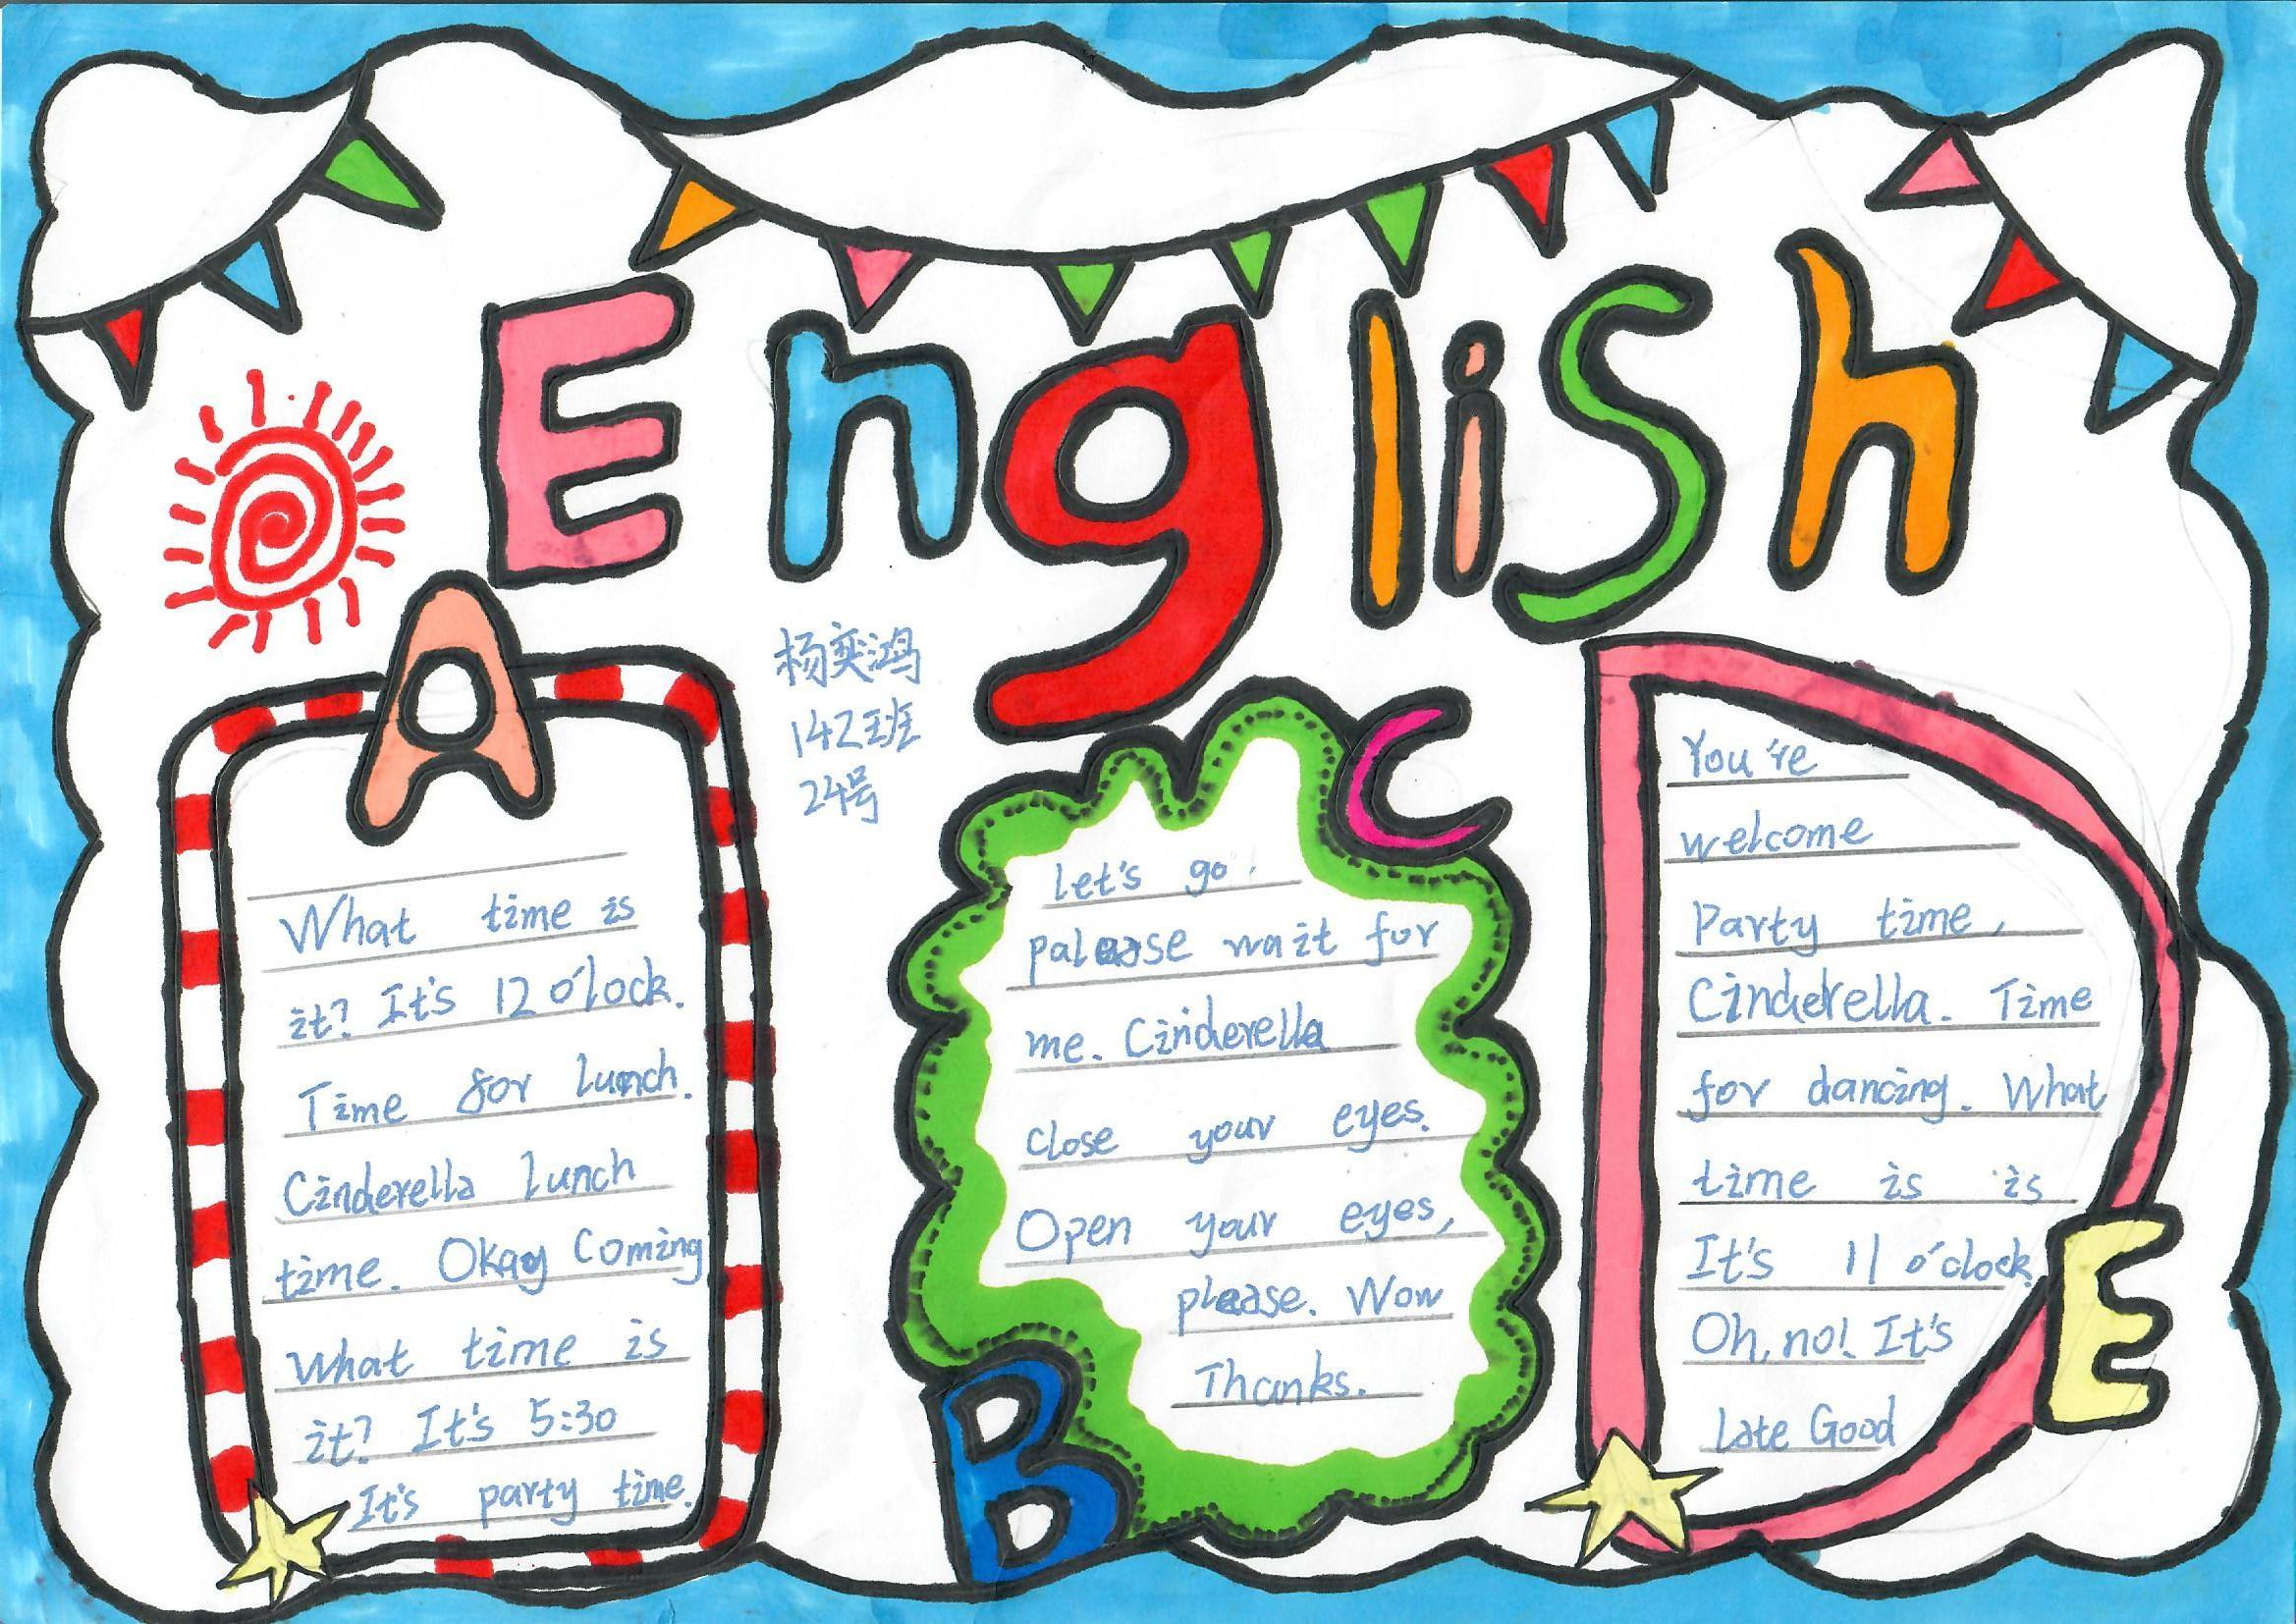 English
杨奕鸿
142班
24号
A
What time is
it? It's 12 o'lock.
Time for lunch.
Cinderella lunch
time. Okay Coming
What time is
it? It's 5:30
It's party time.
C
Let's go.
palease wait for
me. Cinderella
close your eyes.
Open your eyes,
please. Wow
Thanks.
B
You're
welcome
Party time,
Cinderella. Time
for dancing. What
time is is
It's 11 o'clock
Oh, no! It's
Late Good
E